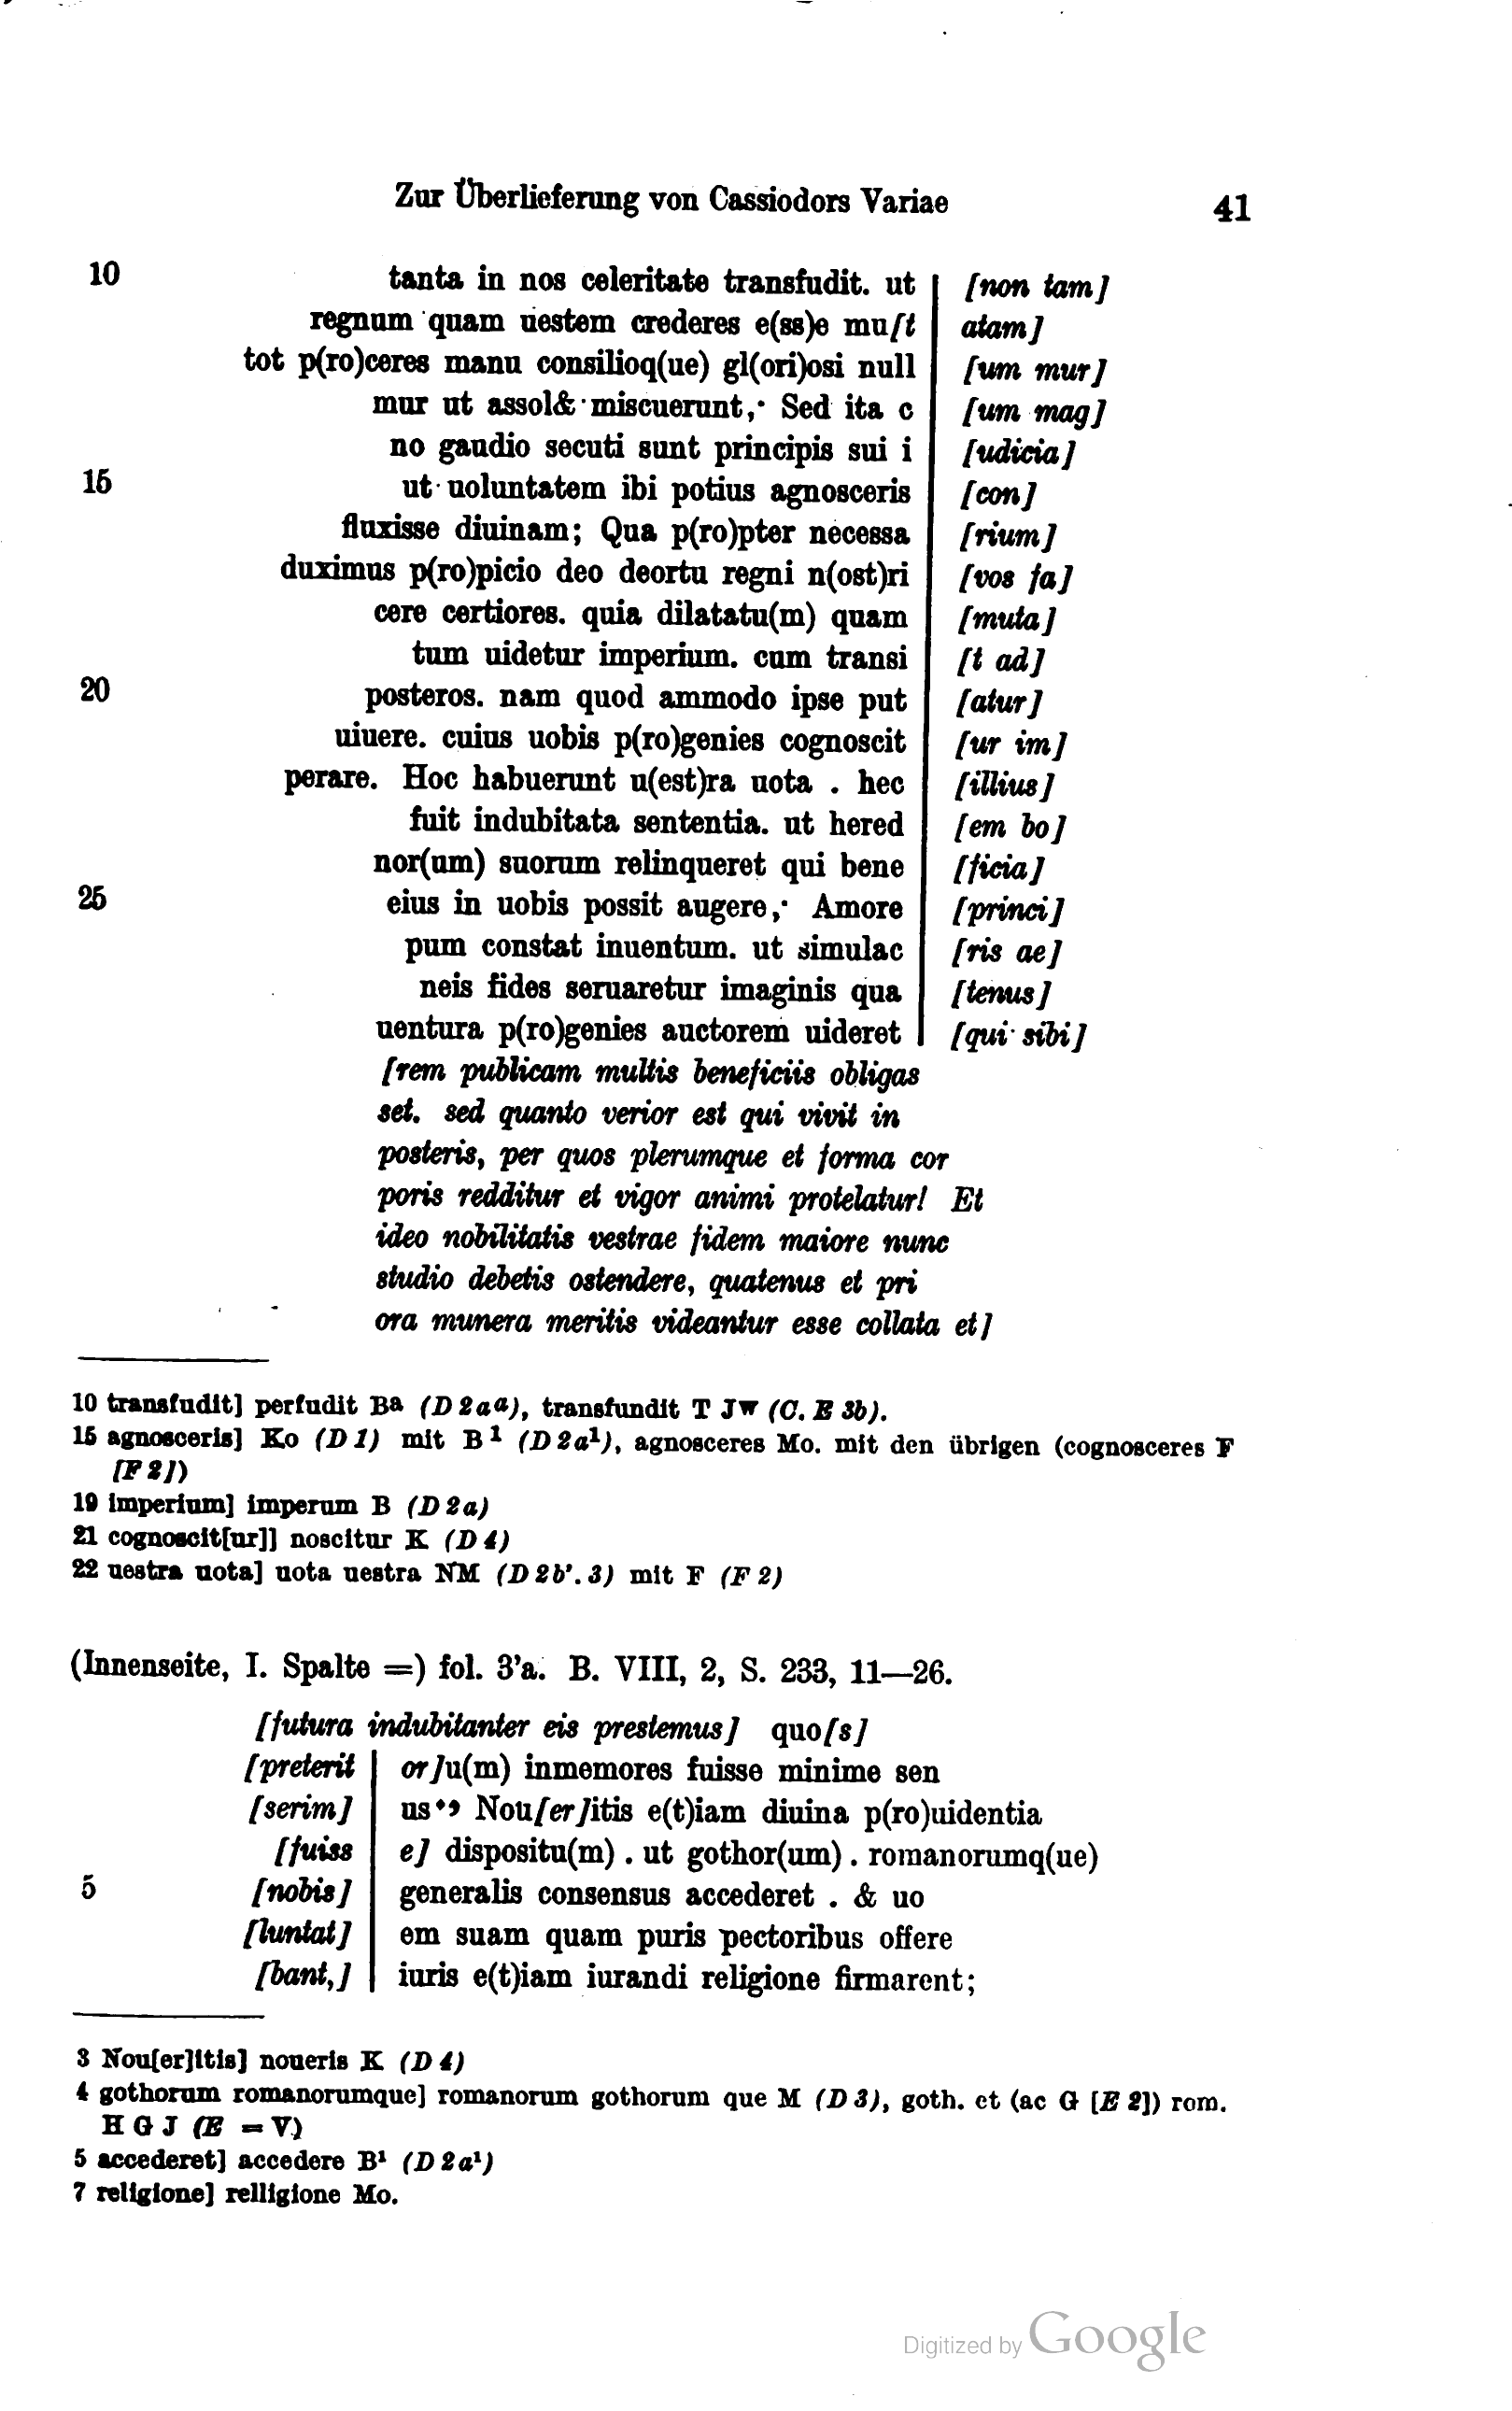 Zur Überlieferung von Cassiodors Variae 41
10 tanta in nos celeritate transfudit. ut | [non tam]
regnum quam uestem crederes e(ss)e mu[t | atam]
tot p(ro)ceres manu consilioq(ue) gl(ori)osi null | [um mur]
mur ut assol& · miscuerunt,· Sed ita c | [um mag]
no gaudio secuti sunt principis sui i | [udicia]
15 ut · uoluntatem ibi potius agnosceris | [con]
fluxisse diuinam; Qua p(ro)pter necessa | [rium]
duximus p(ro)picio deo deortu regni n(ost)ri | [vos fa]
cere certiores. quia dilatatu(m) quam | [muta]
tum uidetur imperium. cum transi | [t ad]
20 posteros. nam quod ammodo ipse put | [atur]
uiuere. cuius uobis p(ro)genies cognoscit | [ur im]
perare. Hoc habuerunt u(est)ra uota . hec | [illius]
fuit indubitata sententia. ut hered | [em bo]
nor(um) suorum relinqueret qui bene | [ficia]
25 eius in uobis possit augere,· Amore | [princi]
pum constat inuentum. ut simulac | [ris ae]
neis fides seruaretur imaginis qua | [tenus]
uentura p(ro)genies auctorem uideret | [qui · sibi]
[rem publicam multis beneficiis obligas
set. sed quanto verior est qui vivit in
posteris, per quos plerumque et forma cor
poris redditur et vigor animi protelatur! Et
ideo nobilitatis vestrae fidem maiore nunc
studio debetis ostendere, quatenus et pri
ora munera meritis videantur esse collata et]
10 transfudit] perfudit Bª (D 2aª), transfundit T Jʷ (C. E 3b).
15 agnosceris] Ko (D 1) mit B¹ (D 2a¹), agnosceres Mo. mit den übrigen (cognosceres F
[F 2])
19 imperium] imperum B (D 2a)
21 cognoscit[ur]] noscitur K (D 4)
22 uestra uota] uota uestra NM (D 2b'. 3) mit F (F 2)
(Innenseite, I. Spalte =) fol. 3'a. B. VIII, 2, S. 233, 11—26.
[futura indubitanter eis prestemus] quo[s]
[preterit | or]u(m) inmemores fuisse minime sen
[serim] | us·, Nou[er]itis e(t)iam diuina p(ro)uidentia
[fuiss | e] dispositu(m) . ut gothor(um) . romanorumq(ue)
5 [nobis] | generalis consensus accederet . & uo
[luntat] | em suam quam puris pectoribus offere
[bant,] | iuris e(t)iam iurandi religione firmarent;
3 Nou[er]itis] noueris K (D 4)
4 gothorum romanorumque] romanorum gothorum que M (D 3), goth. et (ac G [E 2]) rom.
H G J (E = V)
5 accederet] accedere B¹ (D 2a¹)
7 religione] relligione Mo.
Digitized by Google